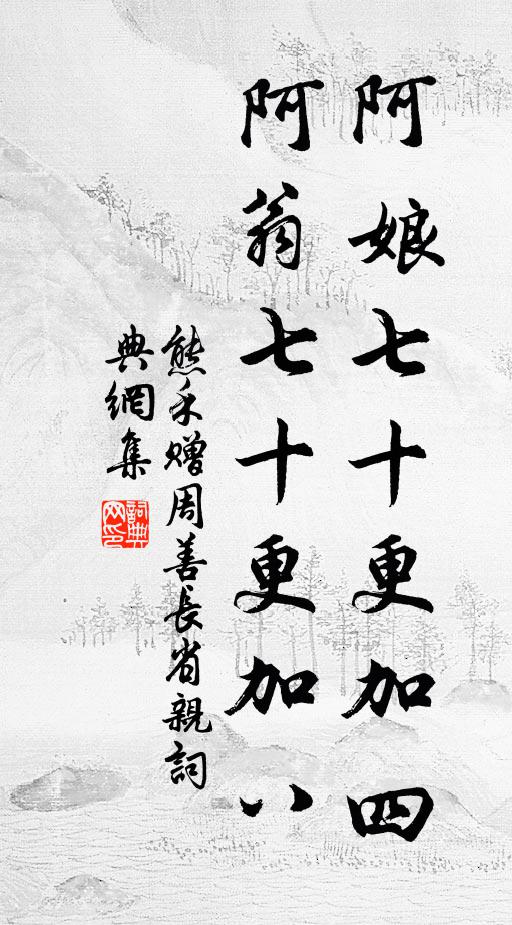 阿娘七十更加四
阿翁七十更加八
熊禾贈周善長省親詞
典網集
詞典網印